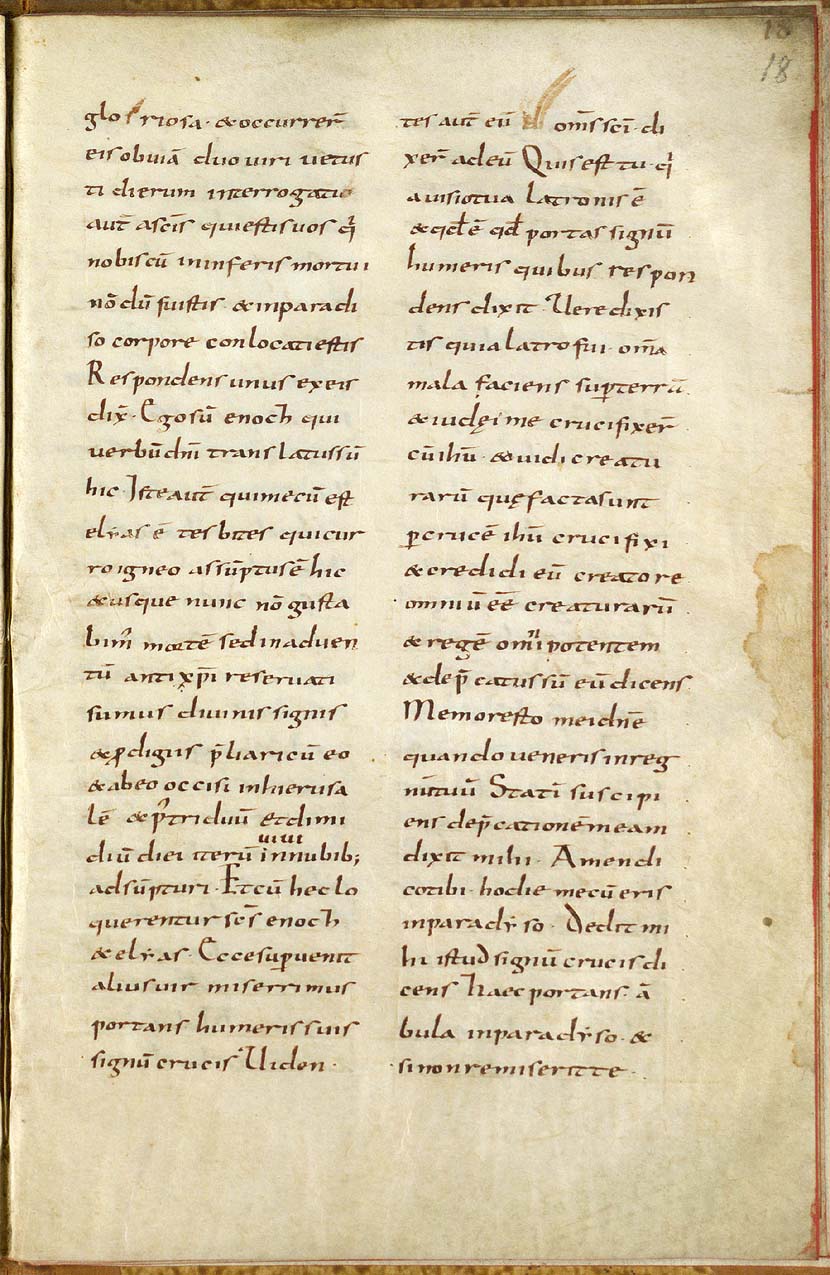 18
18
gloriosa· &occurrer̄
eis obuiā duo uiri uetus
ti dierum interrogatio
aut̄ a sc̄is qui estis uos q̇
nobiscū in inferis mortui
nō dū fuistis · & in paradi
so corpore conlocati estis
Respondens unus ex eis
dix̄· Ego sū enoch qui
uerbū dn̄i translatus sū
hic· Iste aut̄ qui mecū est
elyas ē tesbites qui cur
ro igneo assūptus ē hic
& usque nunc nō gusta
bim̄ mortē sed in aduen
tū antixp̄i reseruati
sumus diuinis signis
& ꝓdigiis p̄liari cū eo
& ab eo occisi in hierusa
lē & p̄ triduū et dimi
uiui
diū diei iterū in nubib;
adsūpturi · Et cū hec lo
querentur sc̄s enoch
& elyas· Ecce suꝑuenit
alius uir miserrimus
portans humeris suis
signū crucis Uiden·
tes aut̄ eū om̄s sc̄i· di
xer̄ ad eū Quis es tu· q̇
a uisio tua latronis ē
& qd ē qd portas signū
humeris quibus respon
dens dixit· Uere dixis
tis quia latro fui· om̄a
mala faciens suꝑ terrā·
& iudęi me crucifixer̄
cū ih̄u· & uidi creatu
rarū quę facta sunt
ꝑ crucē ih̄u crucifixi
& credidi eū creatore
omniū ēē creaturarū
& regē om̄ipotentem
& dep̄catus sū eū dicens
Memor esto mei dn̄e
quando ueneris in reg
nū tuū Statī suscipi
ens dep̄cationē meam
dixit mihi· Amen di
co tibi· hodie mecū eris
in paradyso· Dedit mi
hi istud signū crucis di
cens haec portans· ā
bula in paradyso· &
si non remiserit te·